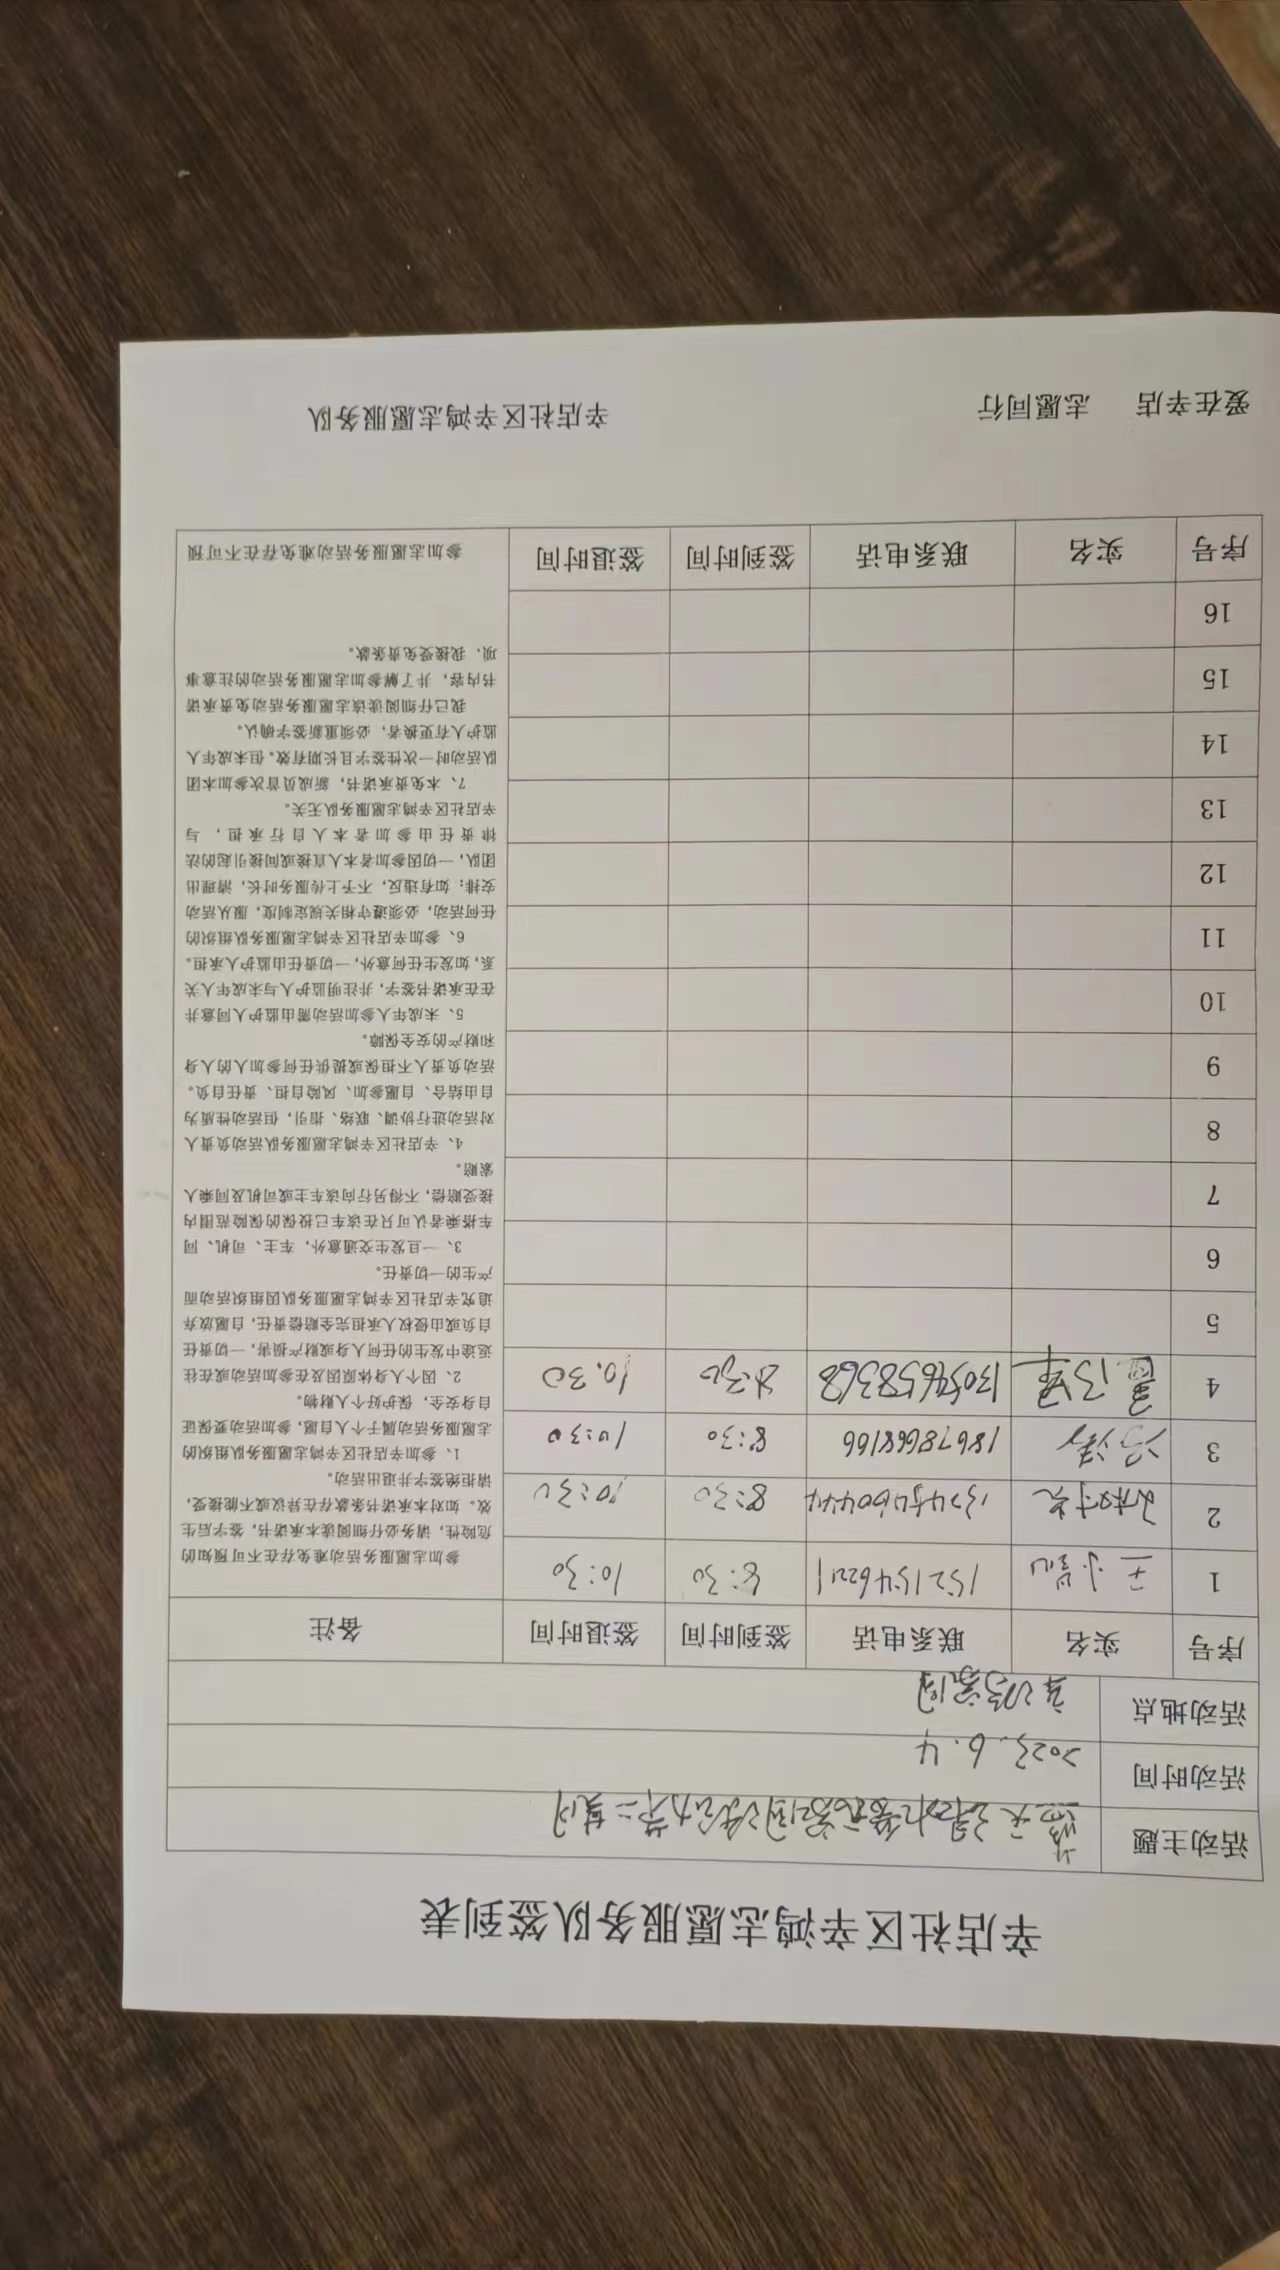 辛店社区辛鸿志愿服务队签到表
活动主题
活动时间 2023.6.4
活动地点
序号 实名 联系电话 签到时间 签退时间 备注
1 王 8:30 10:30
2 8:30 10:30
3 18678668166 8:30 10:30
4 13054658368 8:30 10.30
5
6
7
8
9
10
11
12
13
14
15
16
序号 实名 联系电话 签到时间 签退时间
参加志愿服务活动难免存在不可预知的
危险性，请务必仔细阅读本承诺书，签字后生
效。如对本承诺书条款存在异议或不能接受，
请拒绝签字并退出活动。
1、参加辛店社区辛鸿志愿服务队组织的
志愿服务活动属于个人自愿，参加活动要保证
自身安全，保护好个人财物。
2、因个人身体原因及在参加活动或在往
返途中发生的任何人身或财产损害，一切责任
自负或由侵权人承担完全赔偿责任，自愿放弃
追究辛店社区辛鸿志愿服务队因组织活动而
产生的一切责任。
3、一旦发生交通意外，车主、司机、同
车搭乘者认可只在该车已投保的保险范围内
接受赔偿，不得另行向该车主或司机及同乘人
索赔。
4、辛店社区辛鸿志愿服务队活动负责人
对活动进行协调、联络、指引，但活动性质为
自由结合、自愿参加、风险自担、责任自负。
活动负责人不担保或提供任何参加人的人身
和财产的安全保障。
5、未成年人参加活动需由监护人同意并
在在承诺书签字，并注明监护人与未成年人关
系，如发生任何意外，一切责任由监护人承担。
6、参加辛店社区辛鸿志愿服务队组织的
任何活动，必须遵守相关规定制度，服从活动
安排；如有违反，不予上传服务时长，清理出
团队，一切因参加者本人直接或间接引起的法
律责任由参加者本人自行承担，与
辛店社区辛鸿志愿服务队无关。
7、本免责承诺书，新成员首次参加本团
队活动时一次性签字且长期有效。但未成年人
监护人有更换者，必须重新签字确认。
我已仔细阅读该志愿服务活动免责承诺
书内容，并了解参加志愿服务活动的注意事
项，我接受免责条款。
参加志愿服务活动难免存在不可预
爱在辛店 志愿同行 辛店社区辛鸿志愿服务队